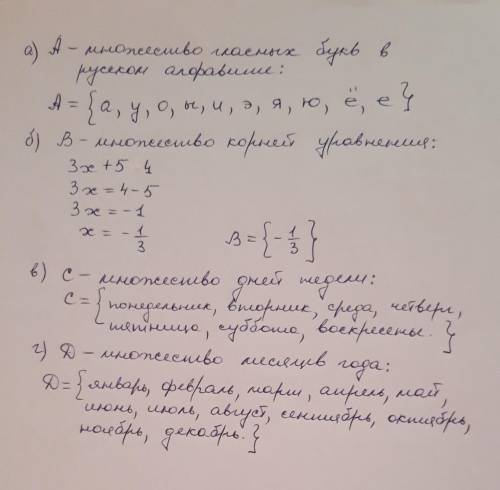 а) А – множество гласных букв в
русском алфавите:
А = {а, у, о, ы, и, э, я, ю, ё, е}
б) В – множество корней уравнения:
3х + 5 4
3х = 4 - 5
3х = -1
х = - 1/3 В = {- 1/3}
в) С – множество дней недели:
С = {понедельник, вторник, среда, четверг,
пятница, суббота, воскресенье.}
г) Д – множество месяцев года:
Д = {январь, февраль, март, апрель, май,
июнь, июль, август, сентябрь, октябрь,
ноябрь, декабрь.}